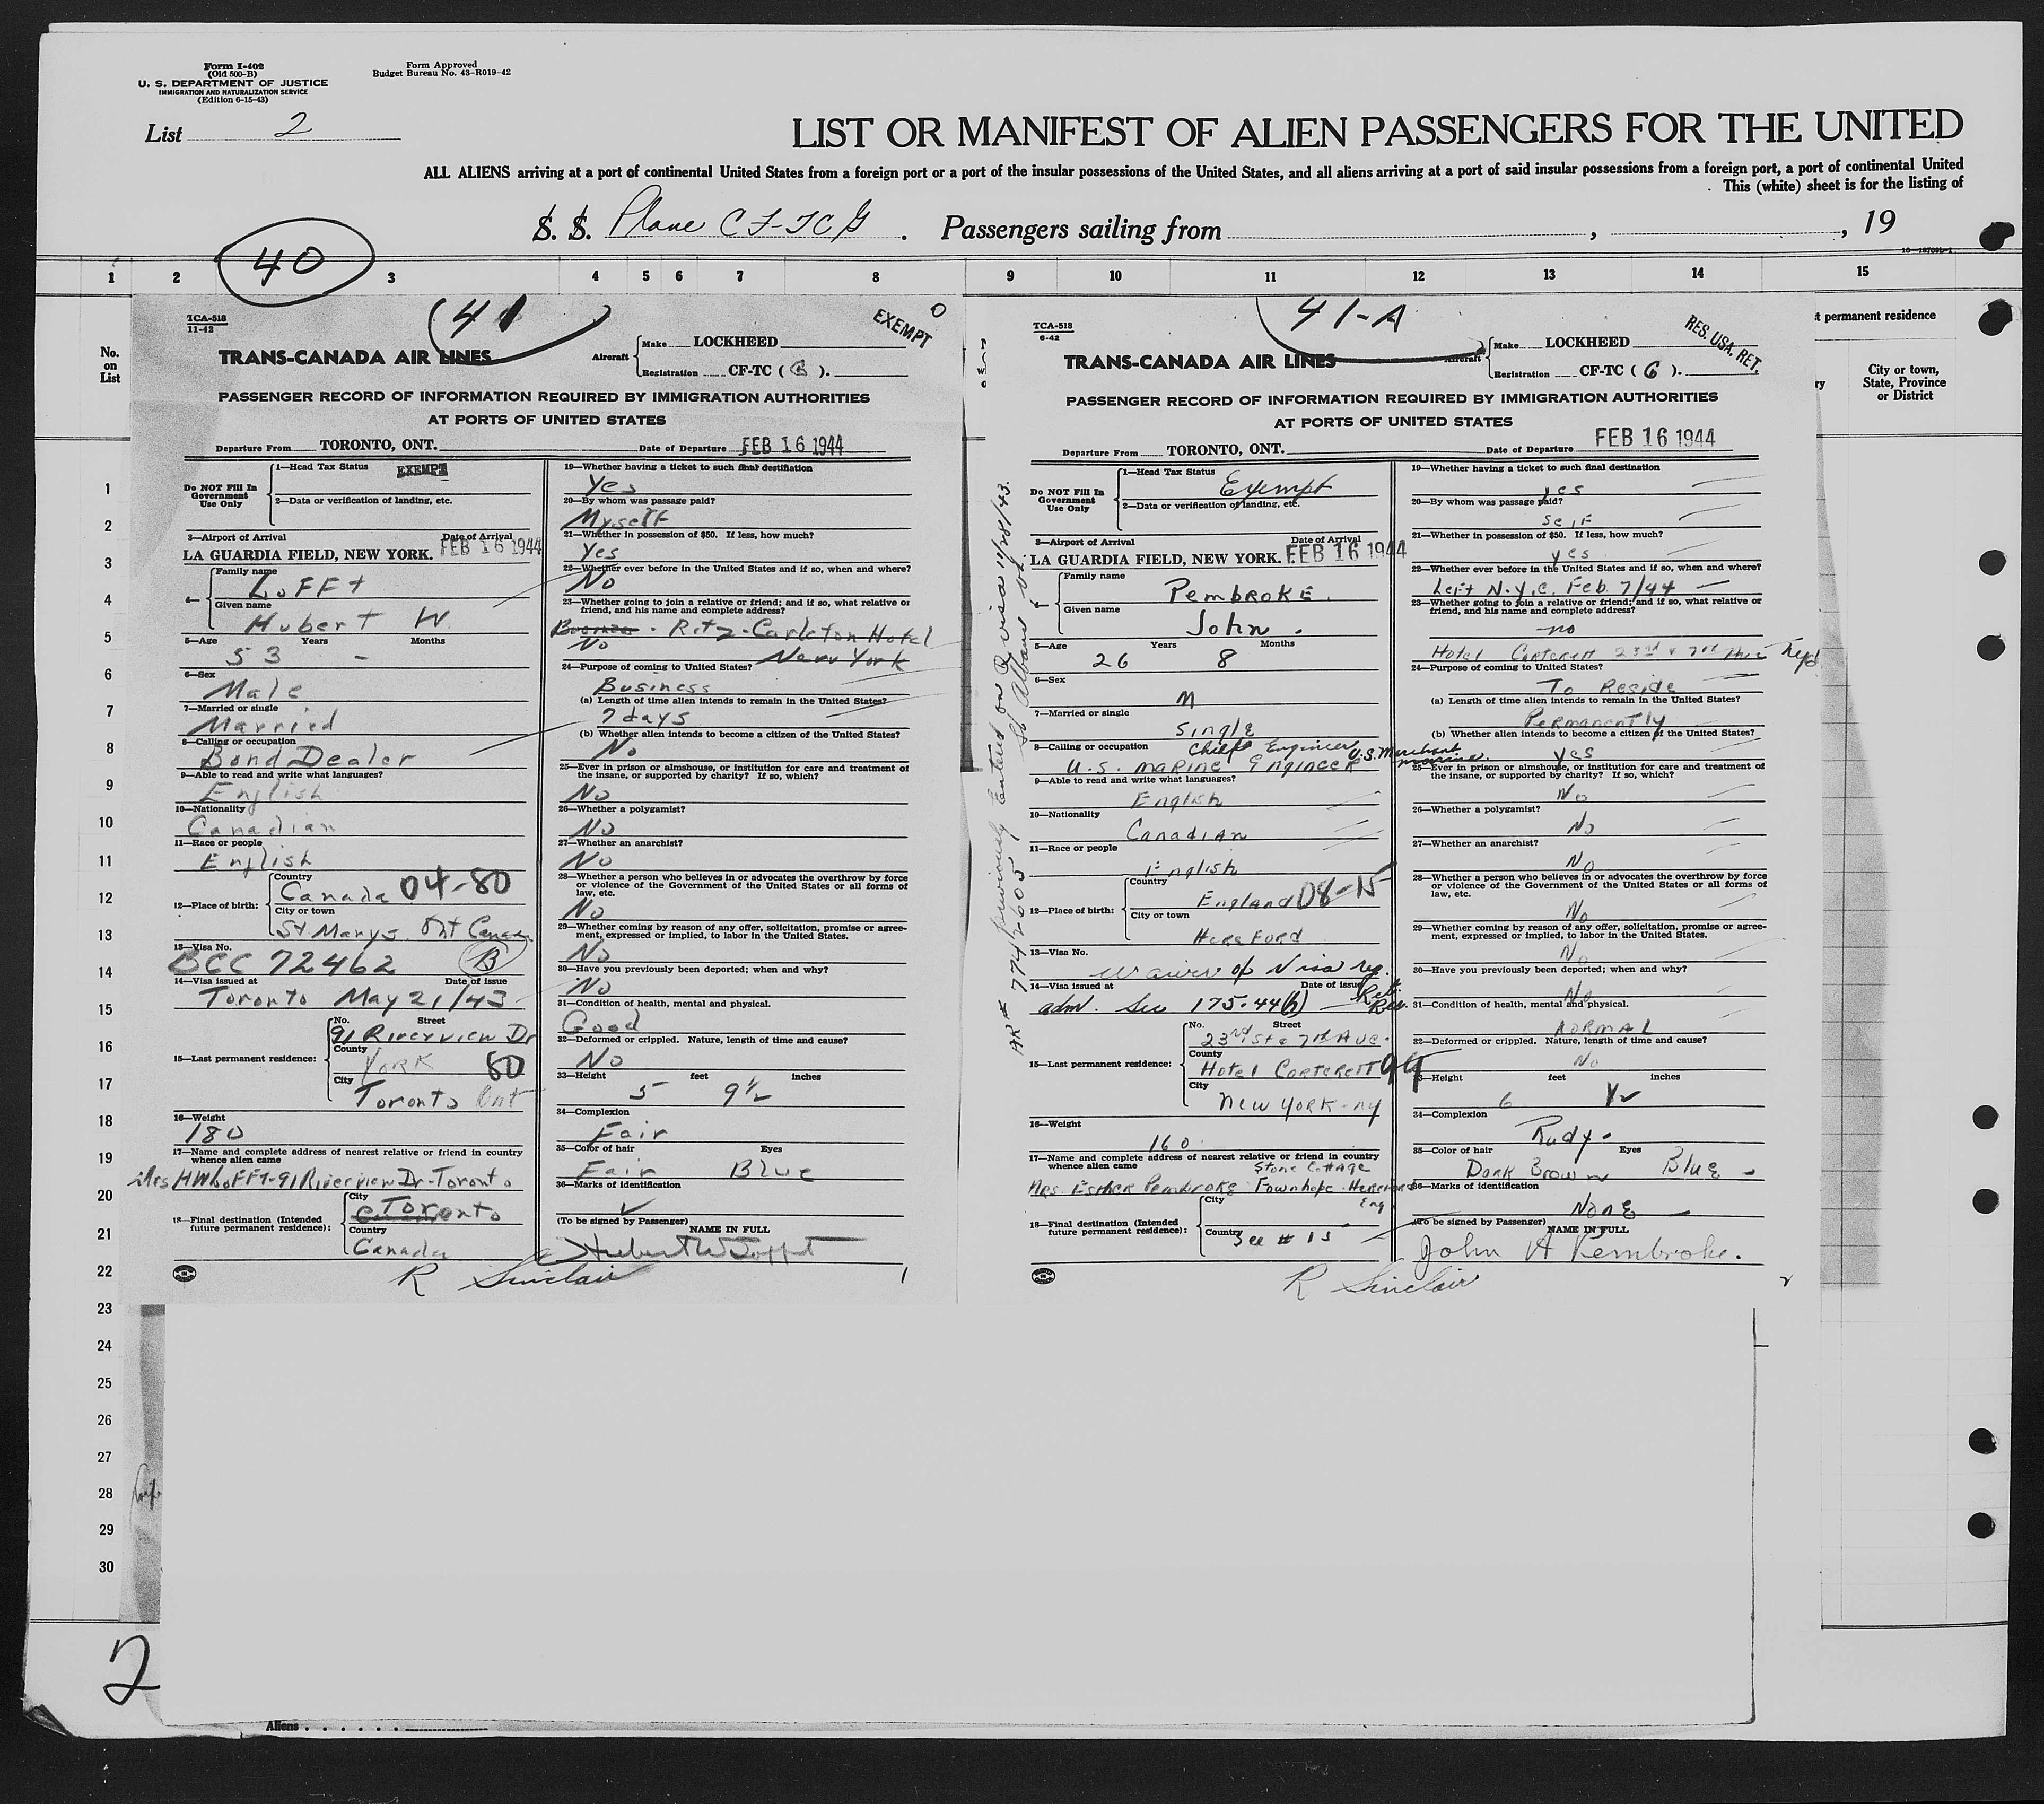 Form I-402
(Old 500-B)
U. S. DEPARTMENT OF JUSTICE
IMMIGRATION AND NATURALIZATION SERVICE
(Edition 6-15-43)
Form Approved
Budget Bureau No. 43-R019-42
List 2
LIST OR MANIFEST OF ALIEN PASSENGERS FOR THE UNITED
ALL ALIENS arriving at a port of continental United States from a foreign port or a port of the insular possessions of the United States, and all aliens arriving at a port of said insular possessions from a foreign port, a port of continental United
This (white) sheet is for the listing of
S. S. Plane CF-TCG. Passengers sailing from , , 19
40
1 2 3 4 5 6 7 8 9 10 11 12 13 14 15
No.
on
List
t permanent residence
City or town,
State, Province
or District
1
2
3
4
5
6
7
8
9
10
11
12
13
14
15
16
17
18
19
20
21
22
23
24
25
26
27
28
29
30
TCA-518
11-42
41
EXEMPT
0
TRANS-CANADA AIR LINES
Aircraft
Make LOCKHEED
Registration CF-TC ( G ).
PASSENGER RECORD OF INFORMATION REQUIRED BY IMMIGRATION AUTHORITIES
AT PORTS OF UNITED STATES
Departure From TORONTO, ONT. Date of Departure FEB 16 1944
Do NOT Fill In
Government
Use Only
1—Head Tax Status EXEMPT
2—Data or verification of landing, etc.
3—Airport of Arrival Date of Arrival
LA GUARDIA FIELD, NEW YORK. FEB 16 1944
4—
Family name
LOFFT
Given name
Hubert W.
5—Age Years Months
53 -
6—Sex
Male
7—Married or single
Married
8—Calling or occupation
Bond Dealer
9—Able to read and write what languages?
English
10—Nationality
Canadian
11—Race or people
English
12—Place of birth:
Country
Canada 04-80
City or town
St Marys. Ont Canada
13—Visa No.
BCC 72462 B
14—Visa issued at Date of issue
Toronto May 21/43
15—Last permanent residence:
No. Street
91 Riverview Dr
County
York 80
City
Toronto Ont
16—Weight
180
17—Name and complete address of nearest relative or friend in country
whence alien came
Mrs HW LOFFT-91 Riverview Dr-Toronto
18—Final destination (Intended
future permanent residence):
City
Toronto
Country
Canada
19—Whether having a ticket to such final destination
Yes
20—By whom was passage paid?
Myself
21—Whether in possession of $50. If less, how much?
Yes
22—Whether ever before in the United States and if so, when and where?
No
23—Whether going to join a relative or friend; and if so, what relative or
friend, and his name and complete address?
Ritz-Carleton Hotel
No
New York
24—Purpose of coming to United States?
Business
(a) Length of time alien intends to remain in the United States?
7 days
(b) Whether alien intends to become a citizen of the United States?
No
25—Ever in prison or almshouse, or institution for care and treatment of
the insane, or supported by charity? If so, which?
No
26—Whether a polygamist?
No
27—Whether an anarchist?
No
28—Whether a person who believes in or advocates the overthrow by force
or violence of the Government of the United States or all forms of
law, etc.
No
29—Whether coming by reason of any offer, solicitation, promise or agree-
ment, expressed or implied, to labor in the United States.
No
30—Have you previously been deported; when and why?
No
31—Condition of health, mental and physical.
Good
32—Deformed or crippled. Nature, length of time and cause?
No
33—Height feet inches
5 9½
34—Complexion
Fair
35—Color of hair Eyes
Fair Blue
36—Marks of identification
✓
(To be signed by Passenger) NAME IN FULL
Hubert W Lofft
R Sinclair
1
TCA-518
6-42
41-A
RES. USA. RET.
TRANS-CANADA AIR LINES
Aircraft
Make LOCKHEED
Registration CF-TC ( G ).
PASSENGER RECORD OF INFORMATION REQUIRED BY IMMIGRATION AUTHORITIES
AT PORTS OF UNITED STATES
Departure From TORONTO, ONT. Date of Departure FEB 16 1944
Do NOT Fill In
Government
Use Only
1—Head Tax Status
Exempt
2—Data or verification of landing, etc.
3—Airport of Arrival Date of Arrival
LA GUARDIA FIELD, NEW YORK. FEB 16 1944
4—
Family name
PembROKE.
Given name
John.
5—Age Years Months
26 8
6—Sex
M
7—Married or single
Single
8—Calling or occupation
Chief Engineer U.S. Merchant
U.S. MARINE ENGINEER marine.
9—Able to read and write what languages?
English
10—Nationality
Canadian
11—Race or people
English
12—Place of birth:
Country
England 08-15
City or town
HereFord
13—Visa No.
waiver of Visa reg.
14—Visa issued at Date of issue
adm. Sec 175.44(h) Ret. Res.
15—Last permanent residence:
No. Street
23rd St & 7th Ave.
County
Hotel Carterett 99
City
New York - NY
16—Weight
160
17—Name and complete address of nearest relative or friend in country
whence alien came
Stone Cottage
Mrs. Esther Pembroke Fownhope Hereford
Eng
18—Final destination (Intended
future permanent residence):
City
Country
See # 15
AR# 7742605 previously entered on Q visa 11/28/43.
St Albans Vt.
19—Whether having a ticket to such final destination
yes
20—By whom was passage paid?
Self
21—Whether in possession of $50. If less, how much?
yes
22—Whether ever before in the United States and if so, when and where?
Left N.Y.C. Feb. 7/44
23—Whether going to join a relative or friend; and if so, what relative or
friend, and his name and complete address?
no
Hotel Carterett 23rd & 7th Ave NYC
24—Purpose of coming to United States?
To Reside
(a) Length of time alien intends to remain in the United States?
Permanently
(b) Whether alien intends to become a citizen of the United States?
yes
25—Ever in prison or almshouse, or institution for care and treatment of
the insane, or supported by charity? If so, which?
No
26—Whether a polygamist?
No
27—Whether an anarchist?
No
28—Whether a person who believes in or advocates the overthrow by force
or violence of the Government of the United States or all forms of
law, etc.
No
29—Whether coming by reason of any offer, solicitation, promise or agree-
ment, expressed or implied, to labor in the United States.
No
30—Have you previously been deported; when and why?
No
31—Condition of health, mental and physical.
NORMAL
32—Deformed or crippled. Nature, length of time and cause?
No
33—Height feet inches
6 ½
34—Complexion
Rudy.
35—Color of hair Eyes
Dark Brown Blue
36—Marks of identification
None
(To be signed by Passenger) NAME IN FULL
John A Pembroke.
R Sinclair
2
2
Aliens